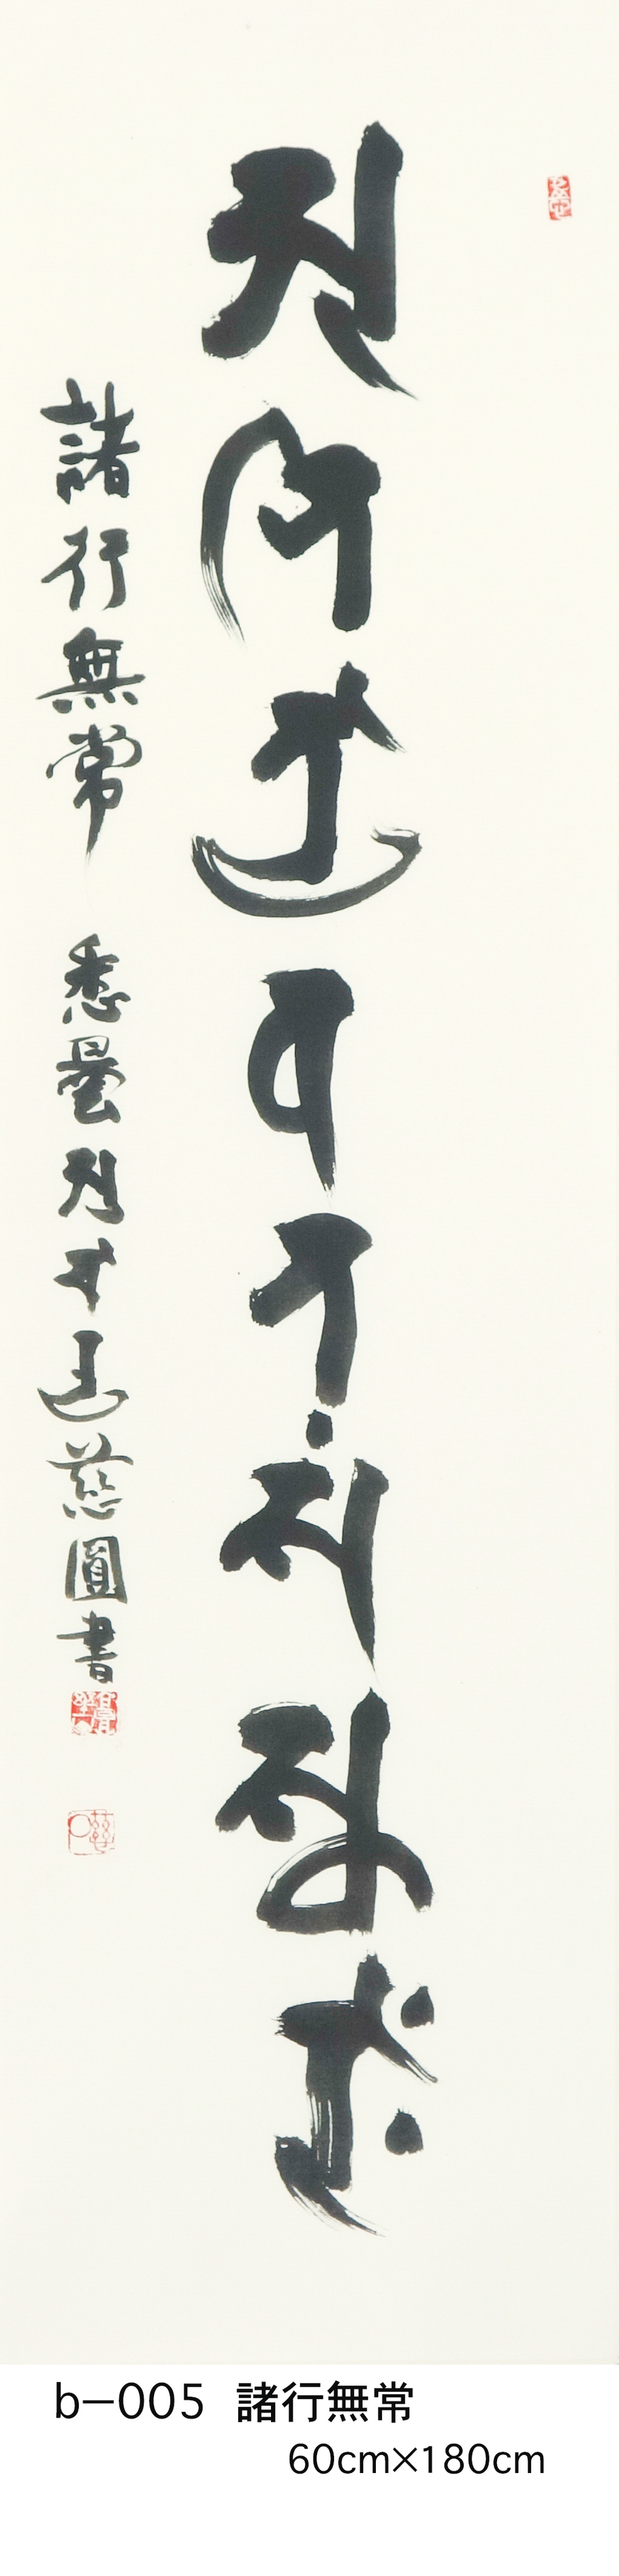 𑖀𑖡𑖰𑖝𑖿𑖧𑖯𑖪𑖝𑖭𑖽𑖭𑖿𑖎𑖯𑖨𑖯𑖾
諸行無常 悉曇 慈圓書
b−005 諸行無常
60cm×180cm